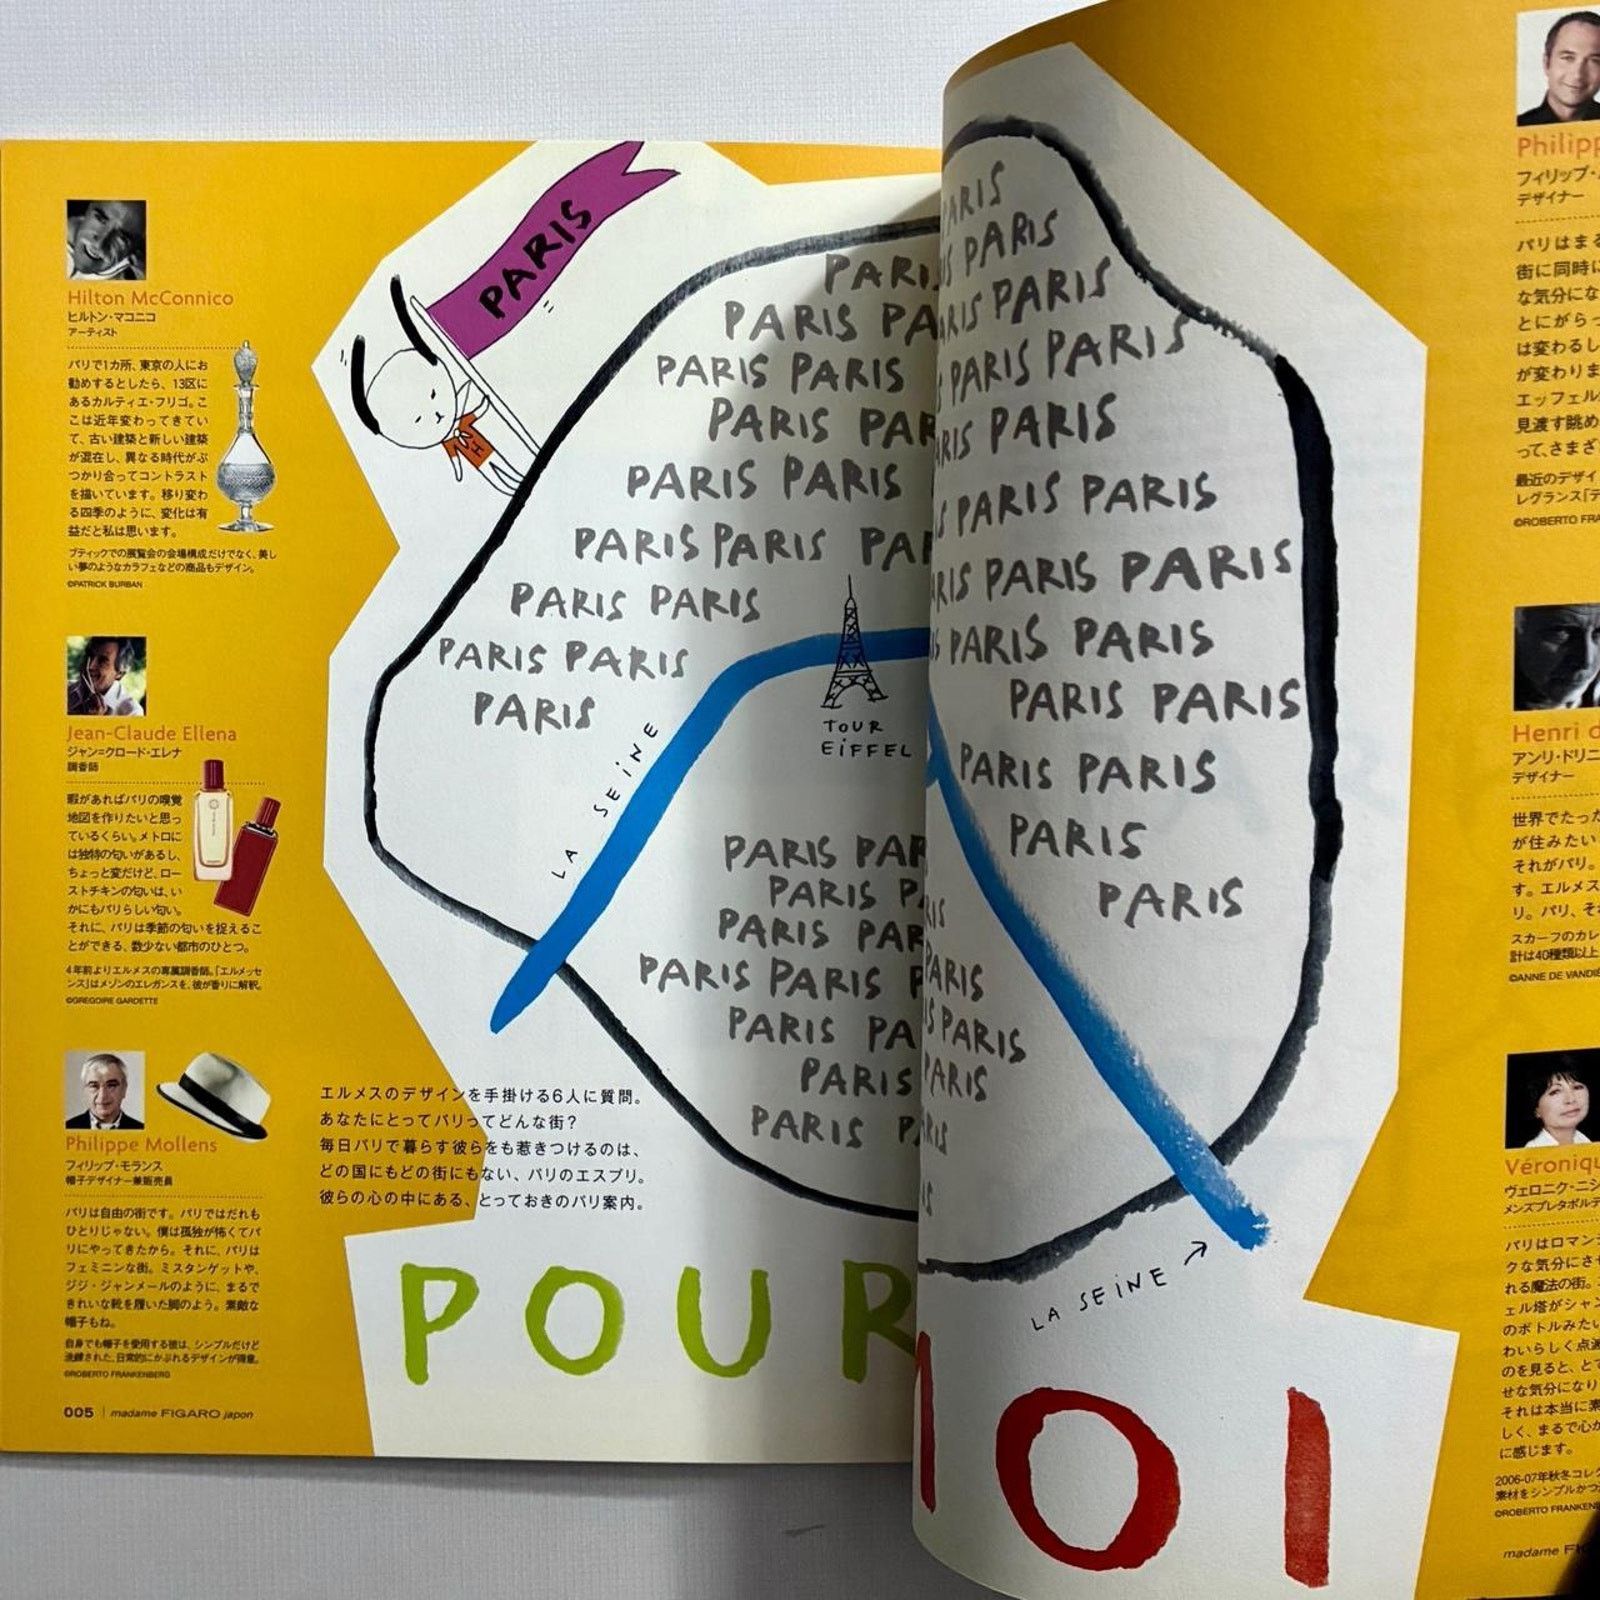 Hilton McConnico
ヒルトン・マコニコ
アーティスト
パリで1カ所、東京の人にお
勧めするとしたら、13区に
あるカルティエ・フリゴ。こ
こは近年変わってきてい
て、古い建築と新しい建築
が混在し、異なる時代がぶ
つかり合ってコントラスト
を描いています。移り変わ
る四季のように、変化は有
益だと私は思います。
ブティックでの展覧会の会場構成だけでなく、美し
い夢のようなカラフェなどの商品もデザイン。
©PATRICK BURBAN
Jean-Claude Ellena
ジャン=クロード・エレナ
調香師
暇があればパリの嗅覚
地図を作りたいと思っ
ているくらい。メトロに
は独特の匂いがあるし、
ちょっと変だけど、ロー
ストチキンの匂いは、い
かにもパリらしい匂い。
それに、パリは季節の匂いを捉えるこ
とができる、数少ない都市のひとつ。
4年前よりエルメスの専属調香師。「エルメッセ
ンス」はメゾンのエレガンスを、彼が香りに解釈。
©GREGOIRE GARDETTE
Philippe Mollens
フィリップ・モランス
帽子デザイナー兼販売員
パリは自由の街です。パリではだれも
ひとりじゃない。僕は孤独が怖くてパ
リにやってきたから。それに、パリは
フェミニンな街。ミスタンゲットや、
ジジ・ジャンメールのように、まるで
きれいな靴を履いた脚のよう。素敵な
帽子もね。
自身でも帽子を愛用する彼は、シンプルだけど
洗練された、日常的にかぶれるデザインが得意。
©ROBERTO FRANKENBERG
005 | madame FIGARO japon
PARIS
H
PARIS
PARIS PA
PARIS PARIS
PARIS PAR
PARIS PARIS
PARIS PARIS PAR
PARIS PARIS
PARIS PARIS
PARIS
LA SEINE
TOUR
EiFFEL
PARIS PAR
PARIS P
PARIS PAR
PARIS PARIS P
PARIS PA
PARIS
PARIS P
エルメスのデザインを手掛ける6人に質問。
あなたにとってパリってどんな街?
毎日パリで暮らす彼らをも惹きつけるのは、
どの国にもどの街にもない、パリのエスプリ。
彼らの心の中にある、とっておきのパリ案内。
POUR
PARIS
S PARIS
ARIS PARIS
S PARIS PARIS
ARIS PARIS
S PARIS PARIS
ARIS PARIS PARIS
S PARIS PARIS
PARIS PARIS
PARIS PARIS
PARIS
PARIS
RIS
PARIS
IS PARIS
PARIS
RIS
IS
LA SEINE
OI
Philipp
フィリップ・
デザイナー
パリはまる
街に同時に
な気分にな
とにがらっ
は変わるし
が変わりま
エッフェル
見渡す眺め
って、さまざ
最近のデザイ
レグランス「テ
©ROBERTO FRA
Henri d
アンリ・ドリニ
デザイナー
世界でたった
が住みたい
それがパリ。
す。エルメス
リ。パリ、それ
スカーフのカレ
計は40種類以上
©ANNE DE VANDIÈ
Véroniqu
ヴェロニク・ニシ
メンズプレタポルテ
パリはロマン
クな気分にさせ
れる魔法の街。
ェル塔がシャン
のボトルみたい
わいらしく点滅
のを見ると、とて
せな気分になり
それは本当に素
しく、まるで心か
に感じます。
2006-07年秋冬コレク
素材をシンプルかつ
©ROBERTO FRANKEN
madame FI